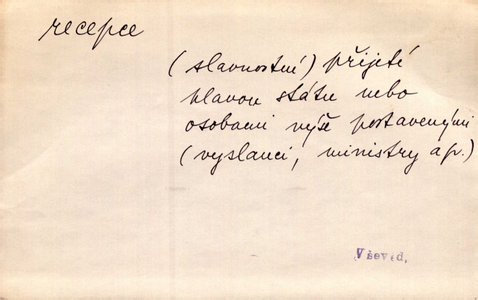 recepce
(slavnostní) přijeté
hlavou státu nebo
osobami výše postavenými
(vyslanci, ministry ap.)
Vševěd,